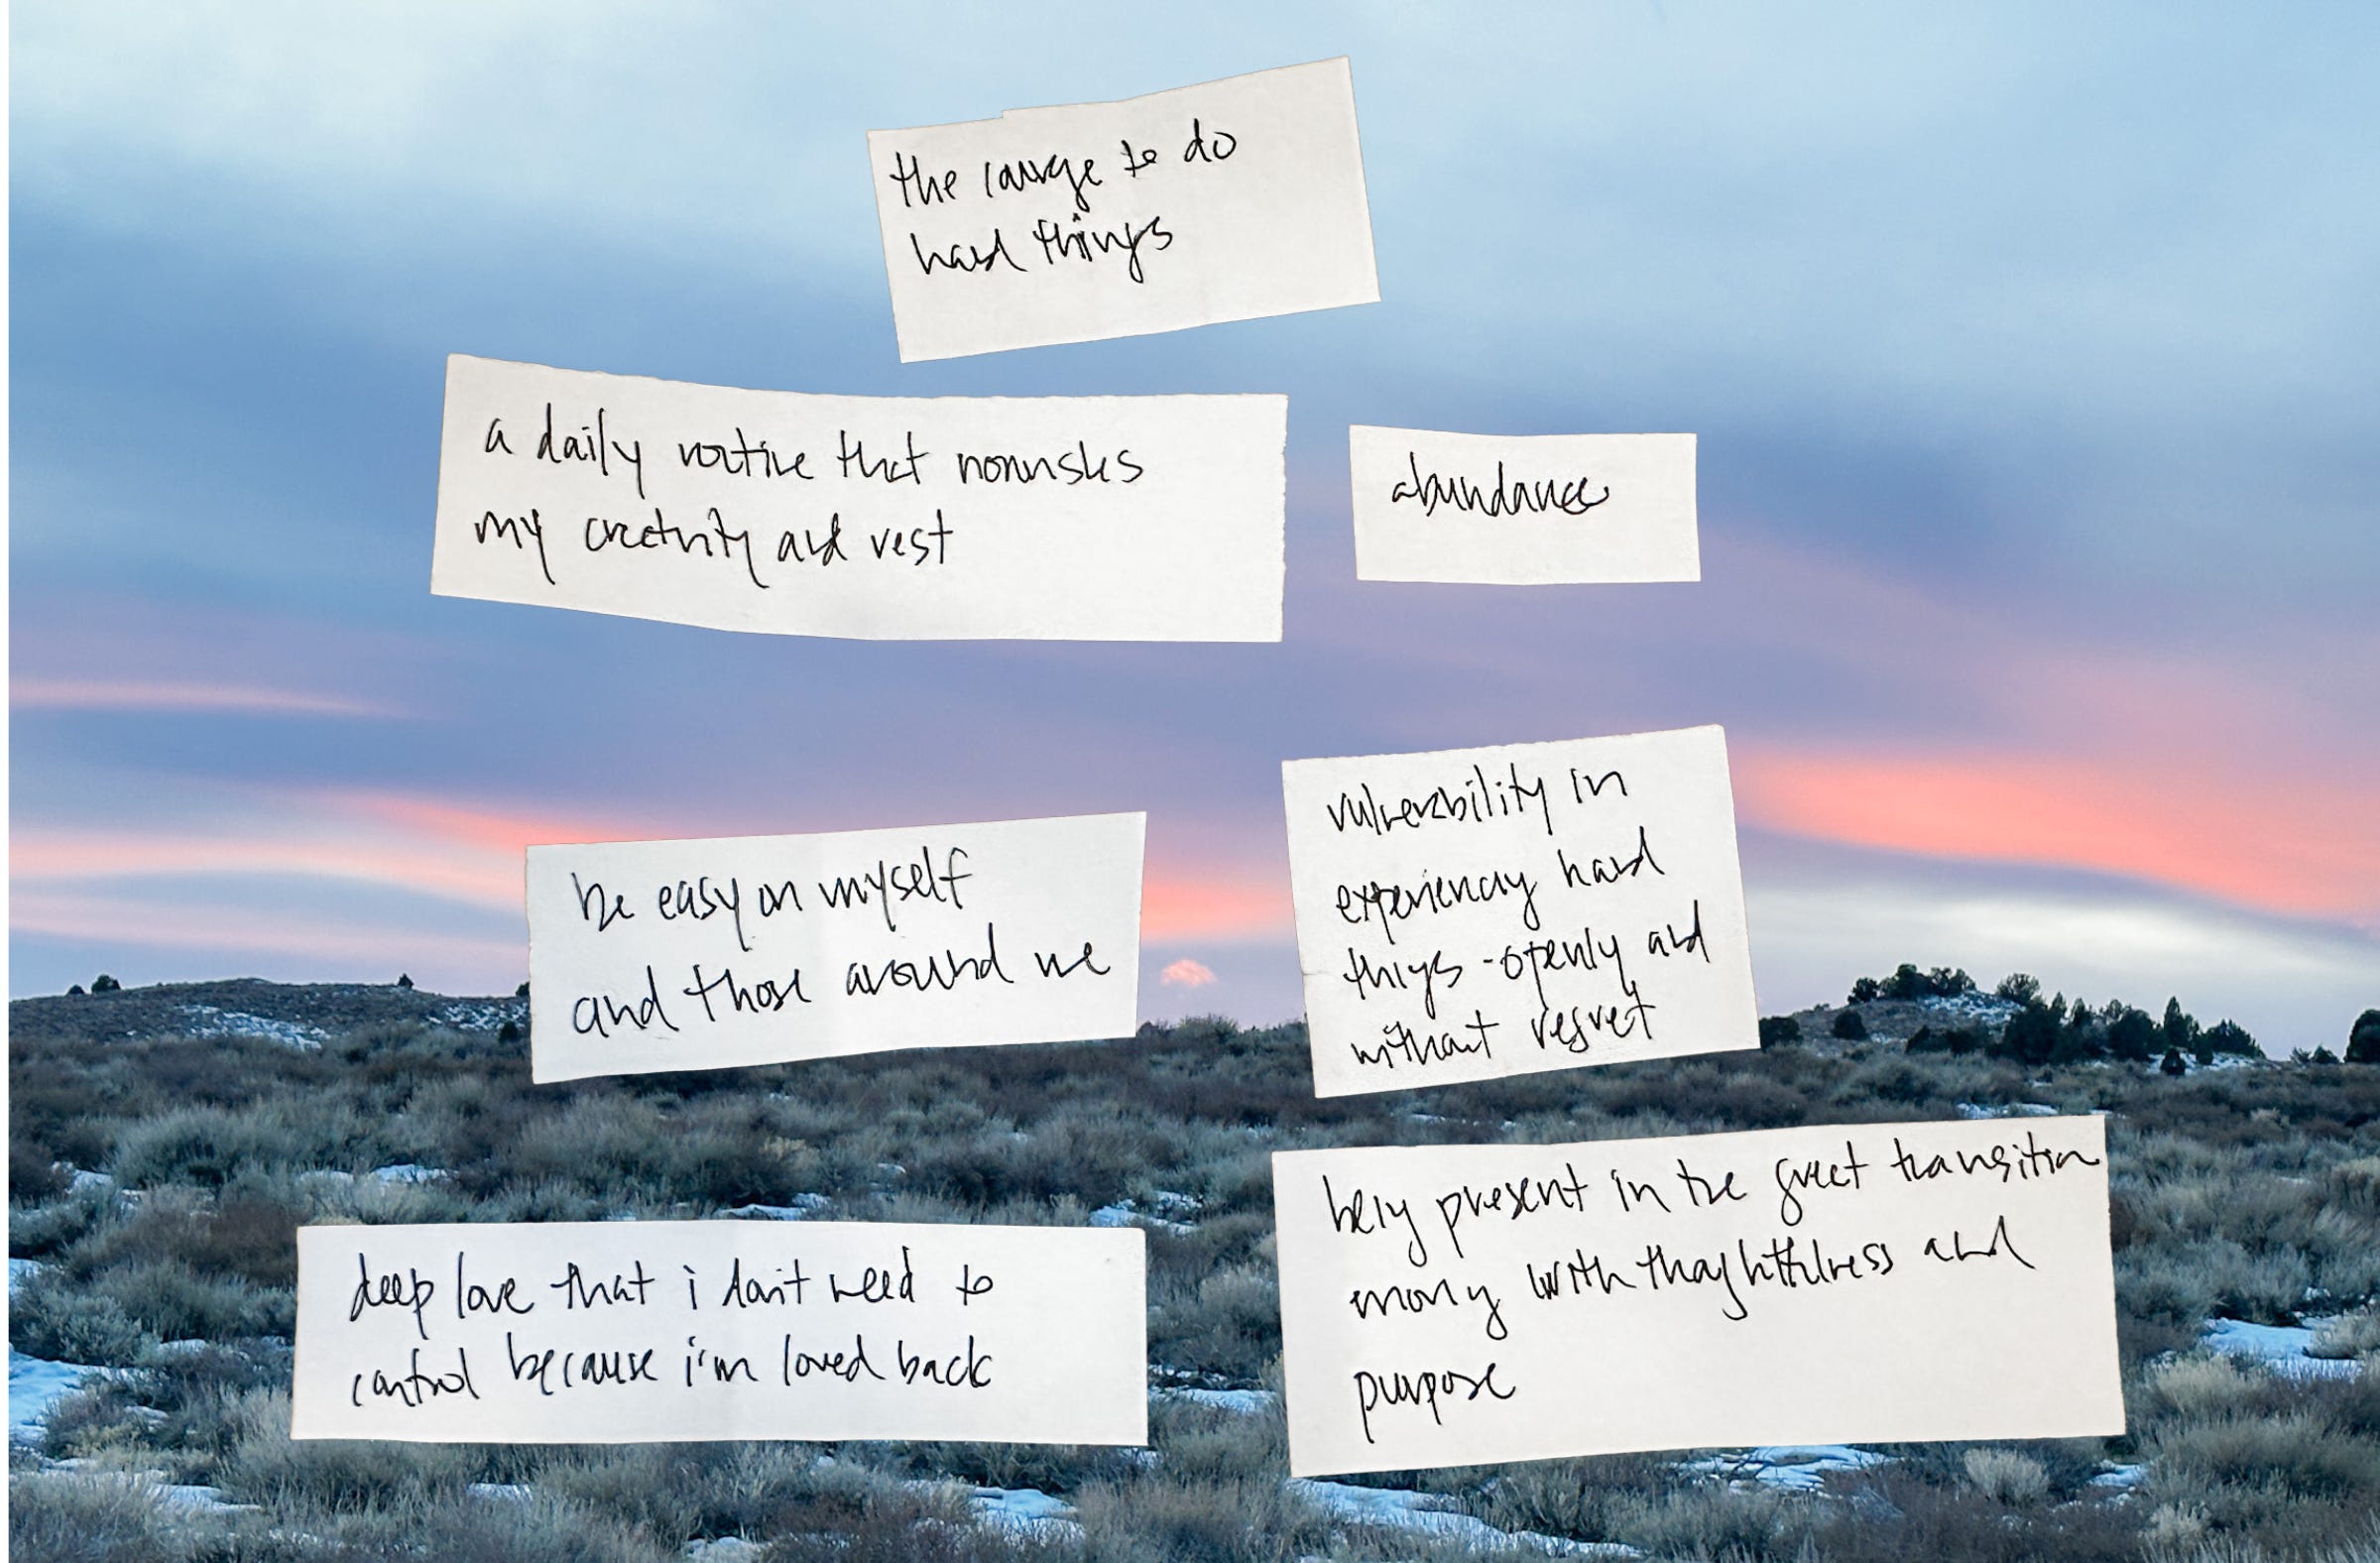 the courage to do
hard things
a daily routine that nourishes
my creativity and rest
abundance
be easy on myself
and those around me
vulnerability in
experiencing hard
things - openly and
without regret
deep love that i don't need to
control because i'm loved back
being present in the great transition
moving with thoughtfulness and
purpose